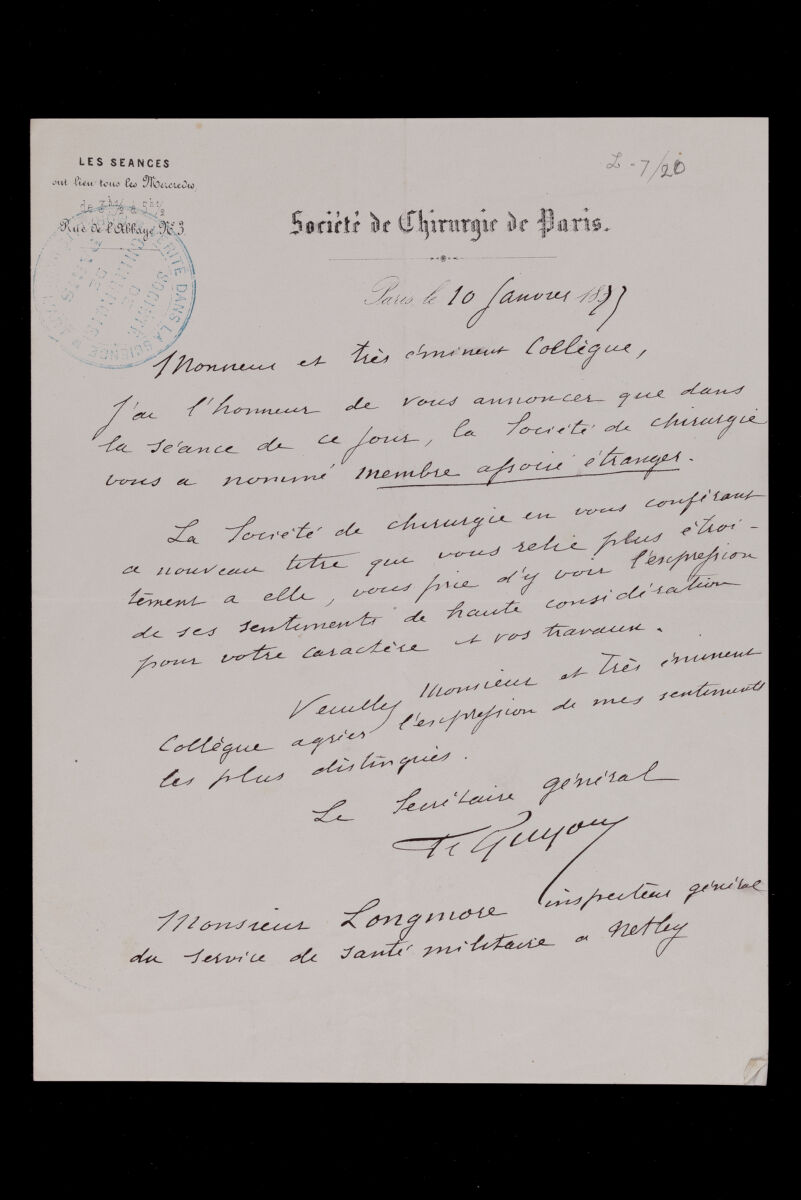 LES SEANCES
ont lieu tous les Mercredis
de 3h½ à 5h½
Rue de l'Abbaye N.3
L-7/20
Société de Chirurgie de Paris.
VERITÉ DANS LA SCIENCE
SOCIÉTÉ
DE
CHIRURGIE
DE
PARIS
Paris, le 10 Janvier 18
Monsieur et très éminent Collègue,
J'ai l'honneur de vous annoncer que dans
la séance de ce jour, la Société de chirurgie
vous a nommé membre associé étranger.
La Société de chirurgie en vous conférant
ce nouveau titre que vous relie plus étroi-
tement a elle, vous prie d'y voir l'expression
de ses sentiments de haute considération
pour votre caractère et vos travaux.
Veuillez Monsieur et très éminent
Collègue agréer l'expression de mes sentiments
les plus distingués.
Le Secrétaire général
Guyon
Monsieur Longmore inspecteur général
du service de santé militaire a Netley